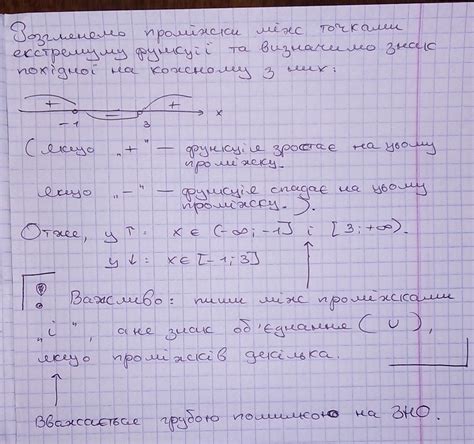 Розглянемо проміжки між точками
екстремуму функції та визначимо знак
похідної на кожному з них:
+ − + x
-1 3
(якщо „+" — функція зростає на цьому
проміжку.
якщо „-" — функція спадає на цьому
проміжку.).
Отже, у ↑: x ∈ (-∞; -1] і [3; +∞).
у ↓: x ∈ [-1; 3]
! Важливо: пиши між проміжками
„і", а не знак об'єднання (∪),
якщо проміжків декілька.
Вважається грубою помилкою на ЗНО.